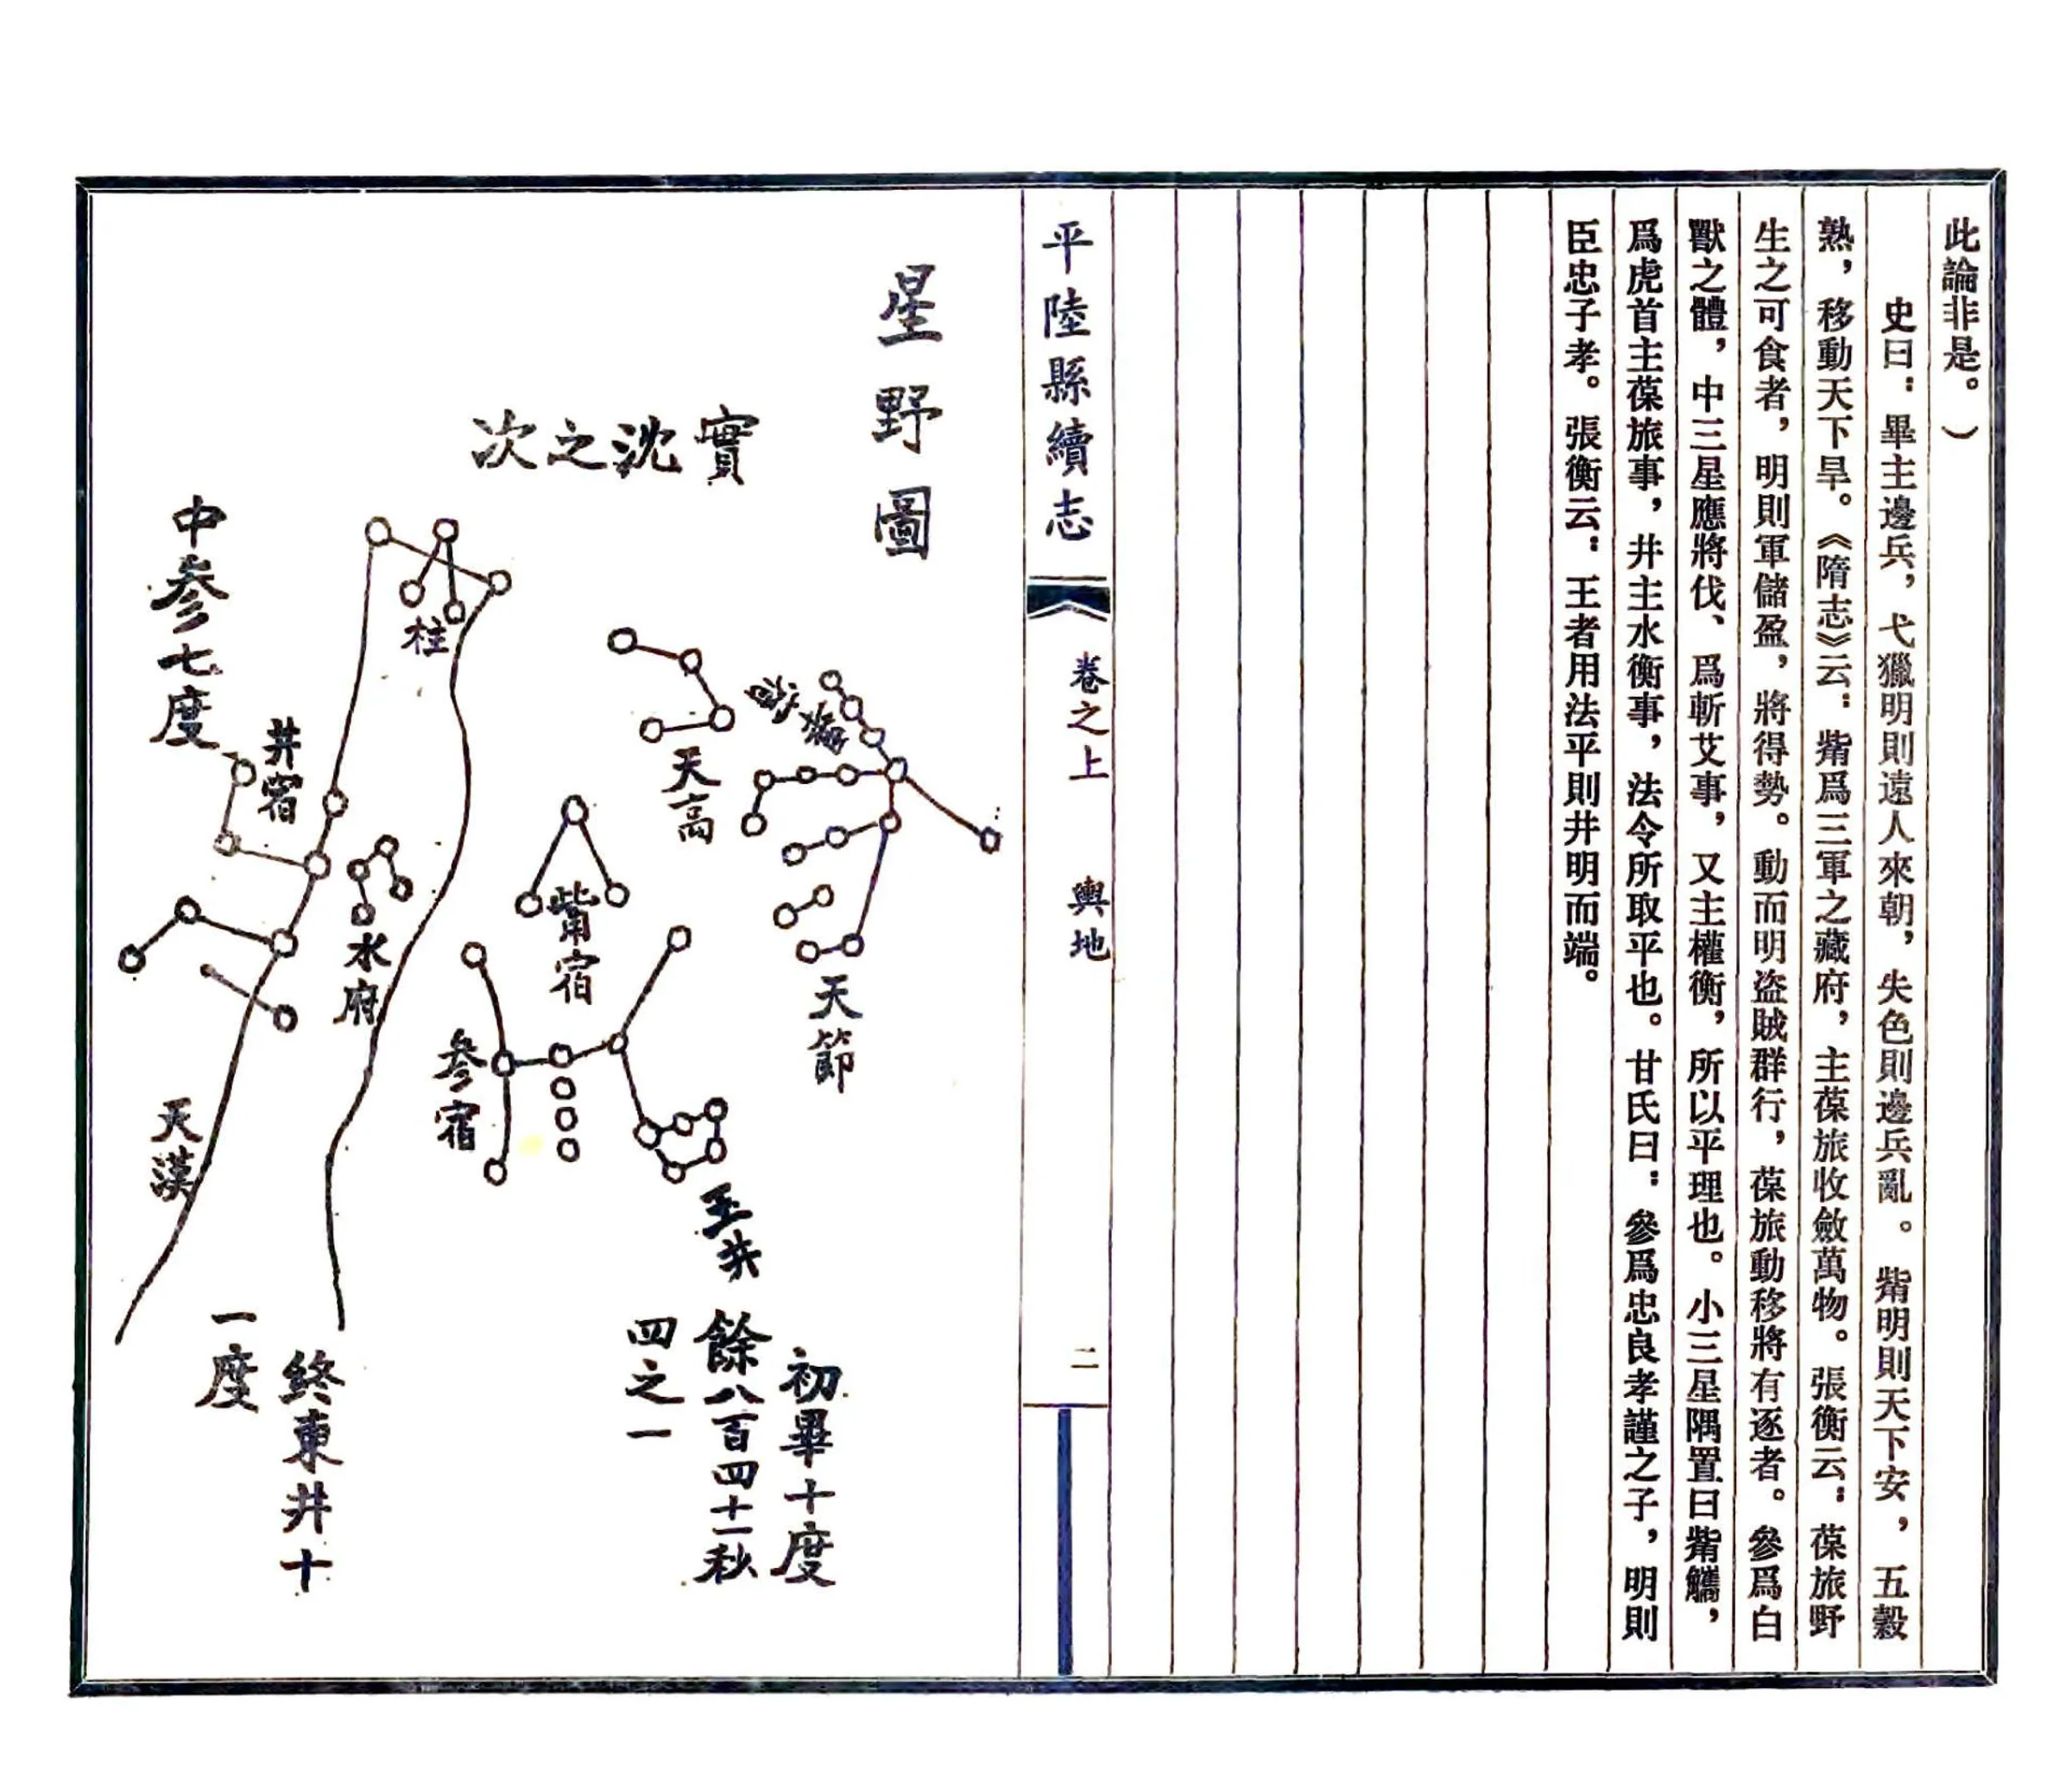 此論非是。）
史曰：畢主邊兵，弋獵明則遠人來朝，失色則邊兵亂。觜明則天下安，五穀
熟，移動天下旱。《隋志》云：觜爲三軍之藏府，主葆旅收斂萬物。張衡云：葆旅野
生之可食者，明則軍儲盈，將得勢。動而明盜賊群行，葆旅動移將有逐者。參爲白
獸之體，中三星應將伐、爲斬艾事，又主權衡，所以平理也。小三星隅置曰觜觿，
爲虎首主葆旅事，井主水衡事，法令所取平也。甘氏曰：參爲忠良孝謹之子，明則
臣忠子孝。張衡云：王者用法平則井明而端。
平陸縣續志
卷之上
輿地
二
星野圖
實沈之次
初畢十度
餘八百四十一秋
四之一
中參七度
終東井十
一度
柱
天高
井宿
水府
觜宿
參宿
天節
玉井
天漢